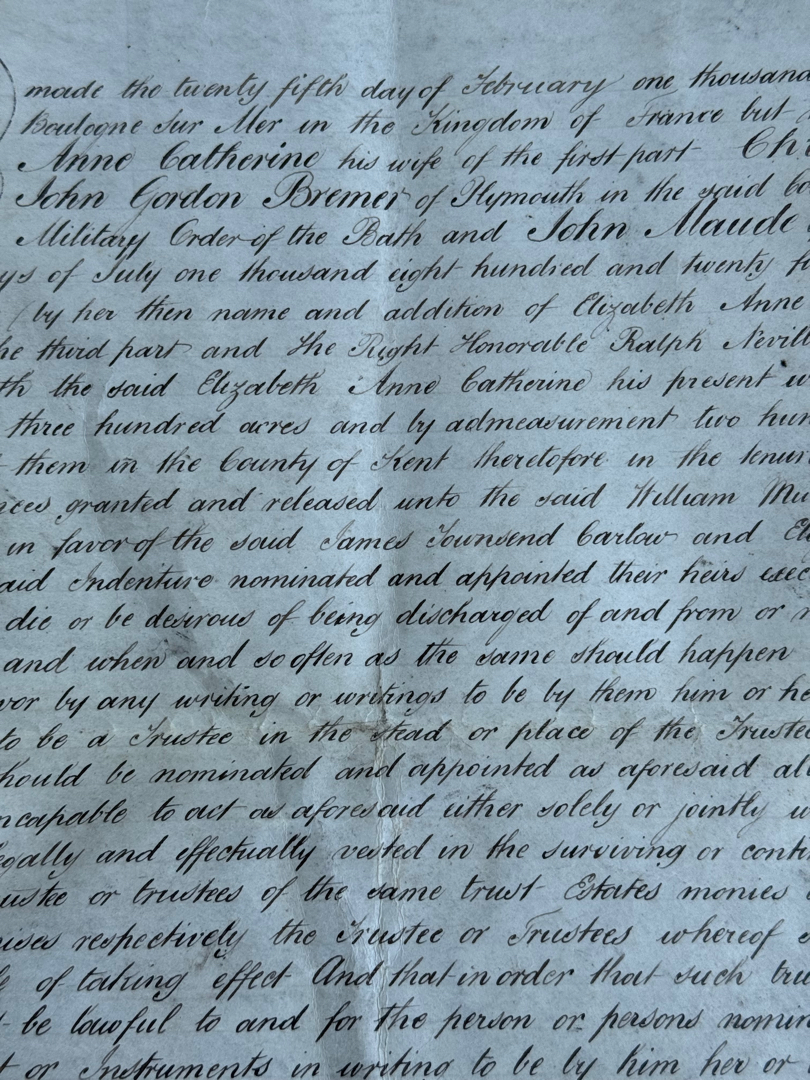 made the twenty fifth day of February one thousand
Boulogne Sur Mer in the Kingdom of France but
Anne Catherine his wife of the first part Ch
John Gordon Bremer of Plymouth in the said Co
Military Order of the Bath and John Maude
ys of July one thousand eight hundred and twenty f
(by her then name and addition of Elizabeth Anne
he third part and The Right Honorable Ralph Nevill
th the said Elizabeth Anne Catherine his present w
three hundred acres and by admeasurement two hun
them in the County of Kent theretofore in the tenur
nces granted and released unto the said William Mu
in favor of the said James Townsend Carlow and El
aid Indenture nominated and appointed their heirs exec
die or be desirous of being discharged of and from or
and when and so often as the same should happen
vor by any writing or writings to be by them him or he
to be a Trustee in the stead or place of the Trustee
hould be nominated and appointed as aforesaid al
ncapable to act as aforesaid either solely or jointly w
egally and effectually vested in the surviving or conti
ustee or trustees of the same trust Estates monies
ises respectively the Trustee or Trustees whereof s
le of taking effect And that in order that such tru
be lawful to and for the person or persons nomin
t or Instruments in writing to be by him her or